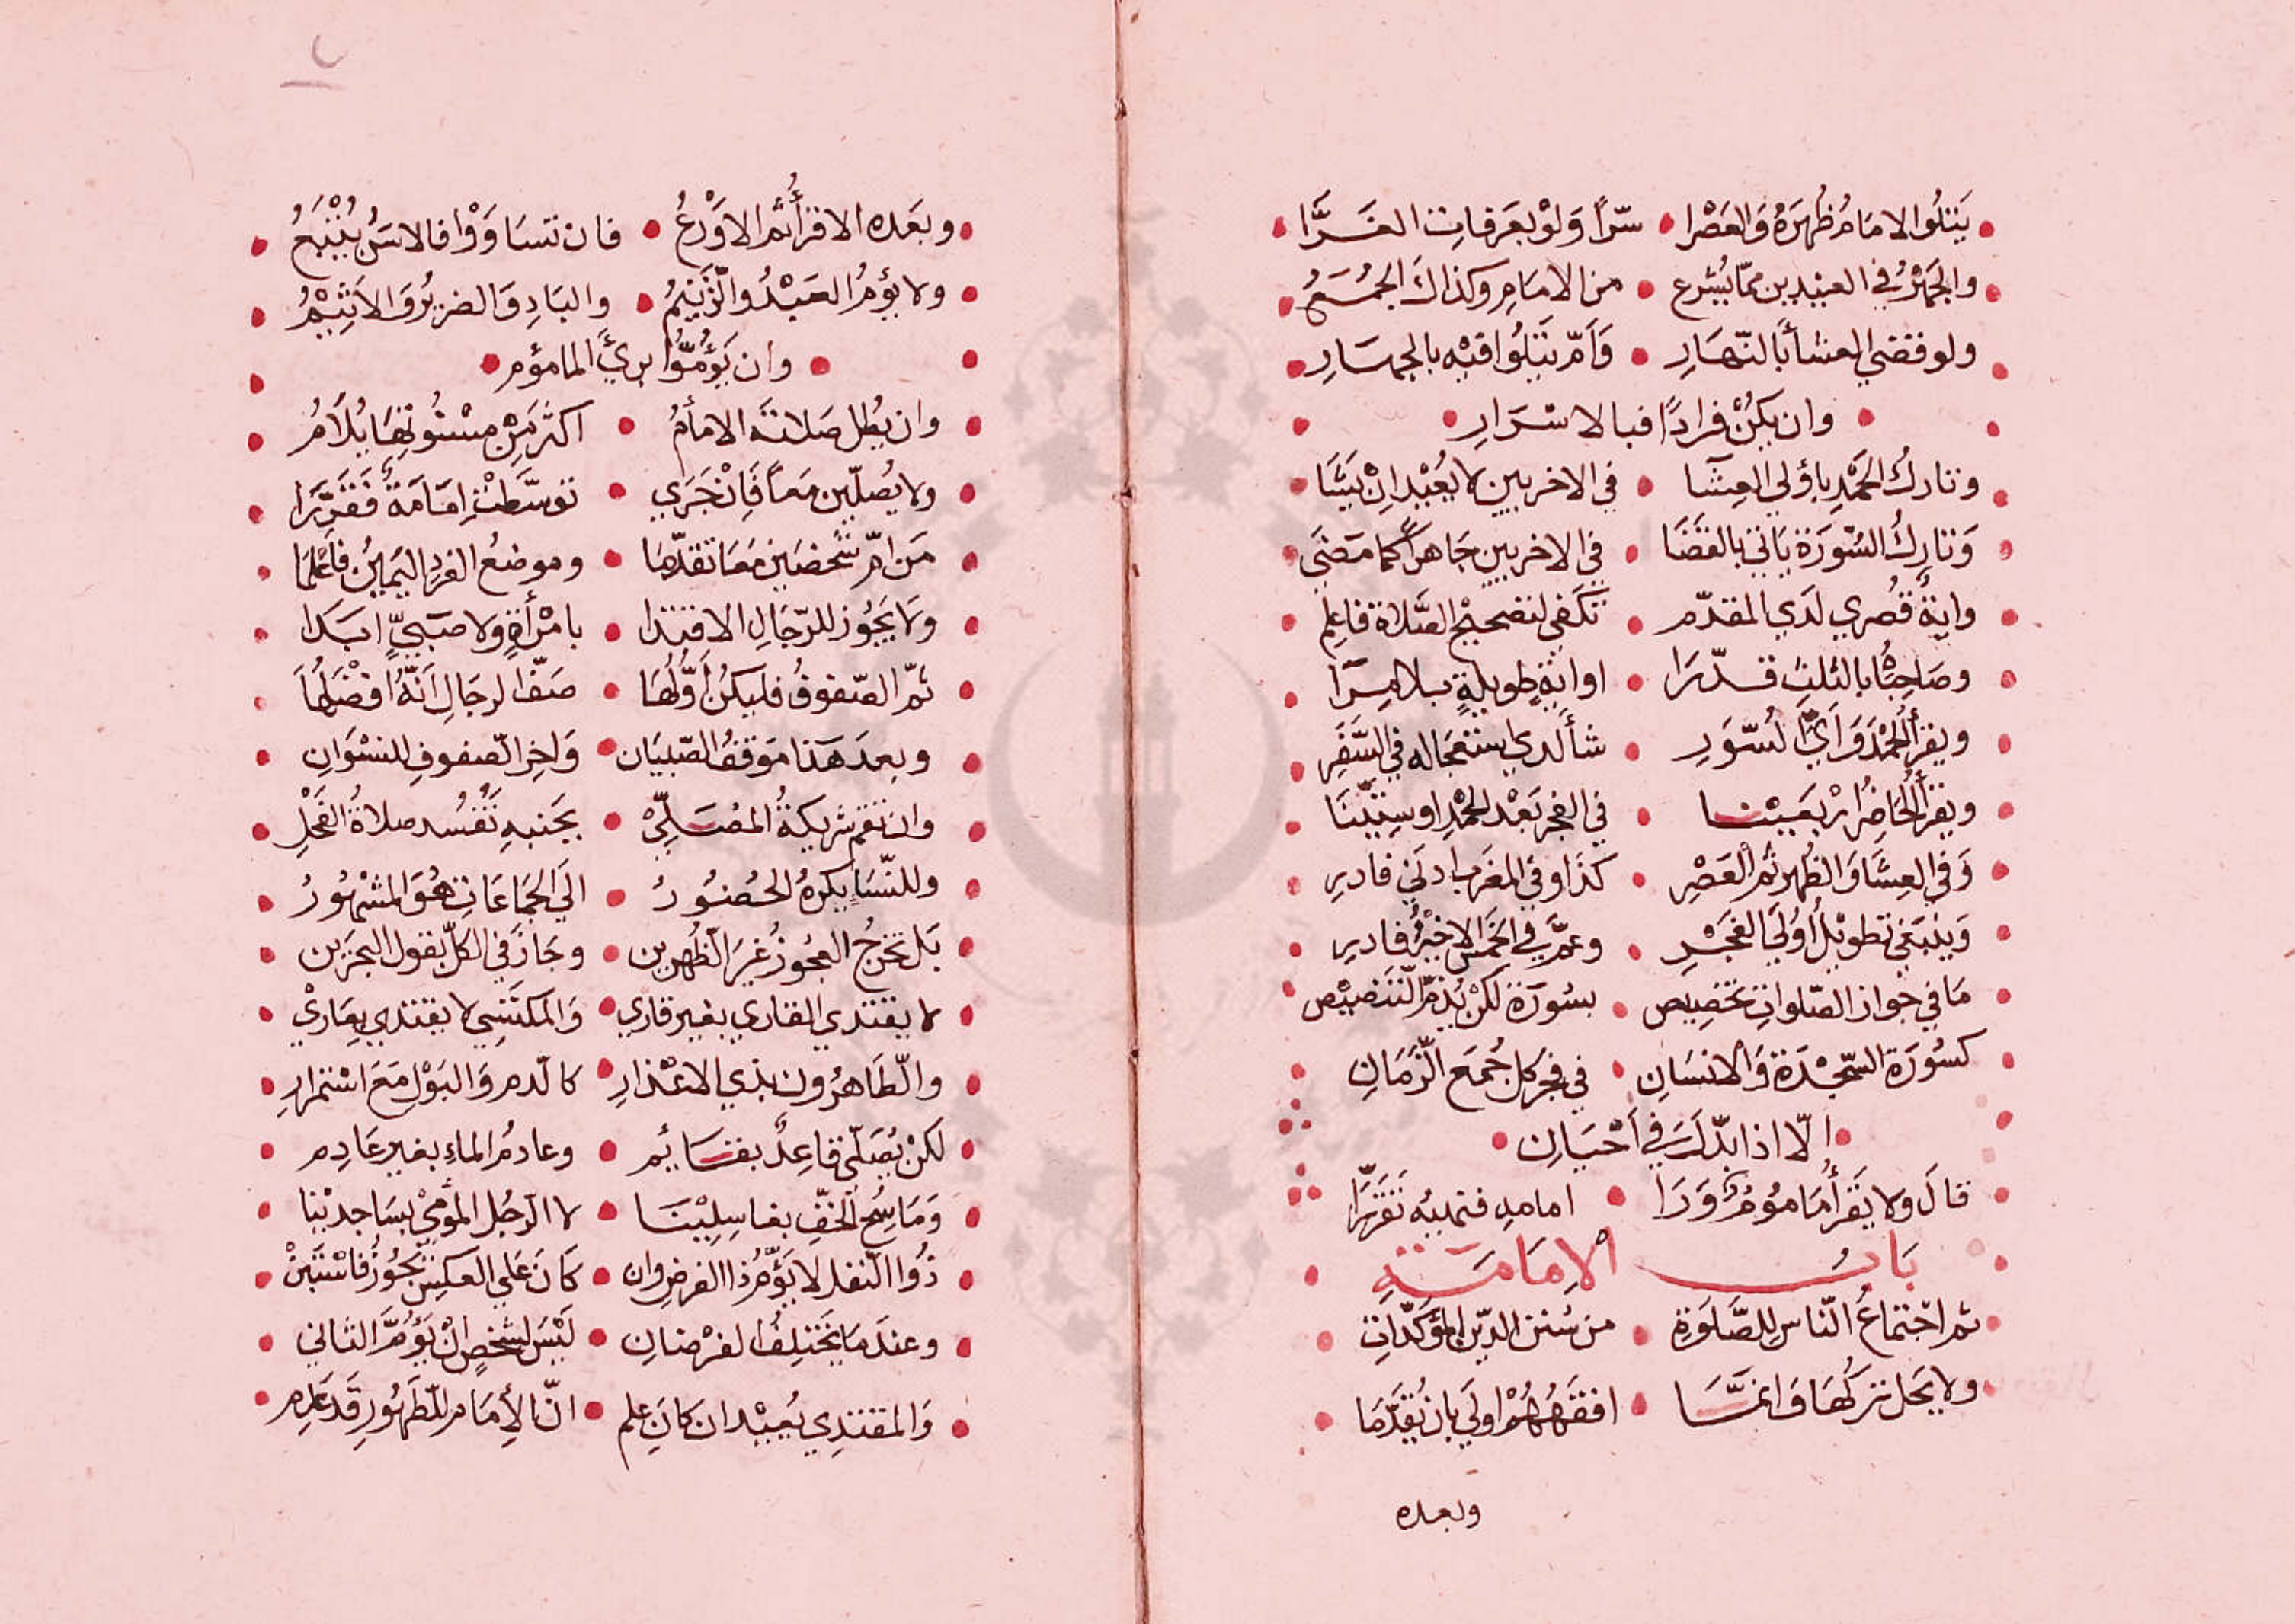 يَتلُوا الامَامُ ظُهرَهُ وَالعَصْرا • سِرّاً وَلَوْ بعَرَفاتِ الغَرَّا
والجَهْرُ في العيْدين ممّا يُشرع • من الامَامِ وكذاكَ الجُمَعُ
ولو قضي العشا بالنّهَارِ • وَأمّ يَتلُوا فيْه بالجهَارِ
وان يكُنْ فرادًا فبالاسْرَارِ
وتارِكُ الحَمْدِ باُولي العِشَا • في الاخريين لا يُعيْد ان يَشَا
وَتارِكُ السُّورَة يَاتي بالقَضَا • في الاخريين جَاهراً كما مَضَي
وايةٌ قُصري لدَي المقدّم • تكفي لتصحيْح الصَّلاة فاعلم
وصَاحِبَاهُ بالثلثِ قدّرَا • او ايةٍ طويلةٍ بلا مِرَا
ويقرأُ الحمْدَ وَايَّ السّوَرِ • شأ لدي استعجاله في السَّفَرِ
ويقرأُ الحَاضِرُ ارْبعَيْنا • في الفجر بَعْد الحمْدِ او سِتّيْنَا
وَفي العِشَا وَالظُهرِ ثمّ العَصْرِ • كذَا وفي المغرَب ادني فادرِ
وَيَنبَغي تطويْلُ اُولَي الفَجْرِ • وعمَّ في الخمْسِ الاخيْرُ فادرِ
مَا في جواز الصّلواتِ تخصِيص • بسُورَة لكنْ يُذَمُّ التّنصِيْص
كسُورَة السّجْدَة وَالانسَانِ • في فجر كل جُمَعِ الزّمَانِ
الّا اذا بدّلَ في اَحْيَانِ
قالَ ولا يَقرأُ مَامُومٌ وَرَا • امامهِ فنهيُه تَقرّرَا
بَابُ الاِمَامَةِ
ثم اجْتماعُ النّاسِ للصَّلَوَةِ • من سُنن الدّيْن المؤكَّدَاتِ
ولا يَحل تَركُهَا وَانمَّا • افقَهُهُمْ اولَي بان يُقَدَّمَا
وبعده
وبعَده الاقرأُ ثم الاوْرَعُ • فان تسَاوَوْا فالاسَنُّ يُتْبَعُ
ولا يؤمُّ العَبْدُ والزَّنِيْمُ • والبَادِ وَالضريرُ وَالاَثِيْمُ
وان يَؤُمُّوا بريَ المامؤم
وان يُطِل صَلاتَه الامأمُ • اكثَر مِنْ مسْنُونِهَا يُلَامُ
ولا يُصلّين مَعاً فَاِنْ جَرَي • توسَّطتْ اِمَامَةٌ فقَرِّرَا
مَن امّ شخصَين مَعَا تقدّمَا • وموضعُ الفردِ اليَميْنُ فاعْلمَا
ولا يَجُوز للرّجَالِ الاقتدا • بامْرأةٍ ولا صَبيٍّ ابَدا
ثمّ الصّفوفُ فليكنْ أوَّلُهَا • صَفَّ الرجَالِ اَنّهُ افضَلُهَا
وبعدَ هَذا مَوقفُ الصّبيَان • وَاخِر الصّفوفِ للنسْوَانِ
وان تقم شريكةُ المُصَلِّيْ • بجَنبهِ تَفْسُد صلاةُ الفَحْلِ
وللنّسَا يكرهُ الحُضُورُ • الَي الجَمَاعَاتِ هُوَ المَشْهُورُ
بَل تخرجُ العجُوزُ غيرَ الظُهرين • وجَازَ في الكلّ بقول البحرَين
لا يقتدي القاري بغير قاري • وَالمكتَسِي لا يقتدي بعَارِيْ
والطّاهرُ ون بذي الاعْذارِ • كالدم وَالبَوْل مَعَ اسْتمرارِ
لكنْ يُصَلّي قاعِدٌ بقَائم • وعادمُ الماءِ بغير عَادِم
وَمَاسِحُ الخفِّ بغاسِلِيْنَا • لا الرّجُل المُوْمِي بسَاجدِيْنا
ذُوا النّفل لا يَؤمُّ ذا الفرضِ وان • كانَ عَلي العكسِ يَجُوْزُ فاسْتَبِنْ
وعندَ مَا يَختلِفُ الفرْضانِ • لَيْسَ لشخصٍ انْ يَؤُمَّ الثاني
وَالمقتدِي يُعيْد ان كانَ علم • انّ الأِمَامَ للطَهُورِ قَد عَدِم